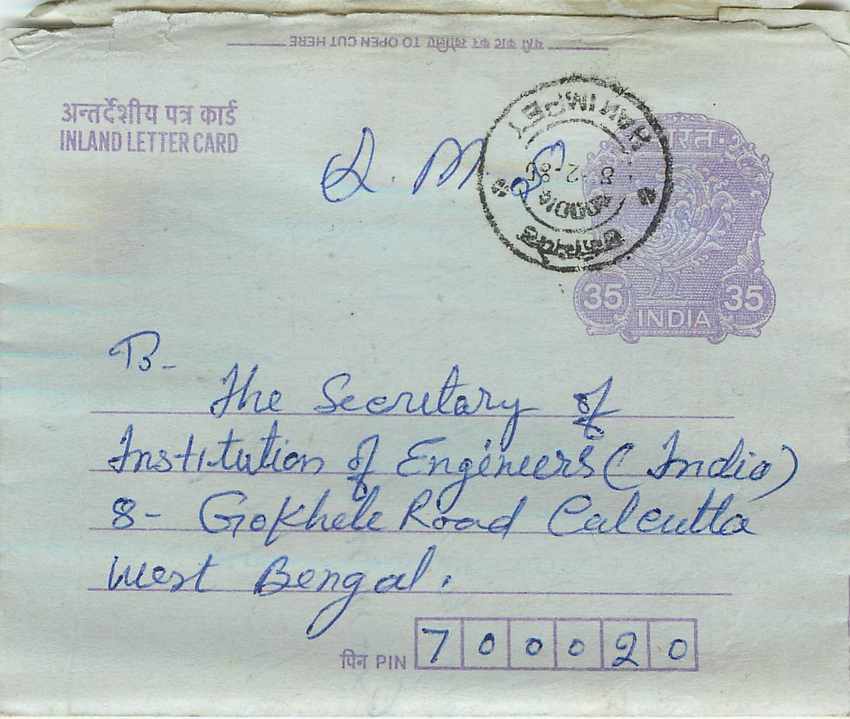 यहाँ काट कर खोलिए TO OPEN CUT HERE
अन्तर्देशीय पत्र कार्ड
INLAND LETTER CARD
भारत
35 35
INDIA
To-
The Secretary of
Institution of Engineers (India)
8- Gokhele Road Calcutta
West Bengal.
पिन PIN 700020